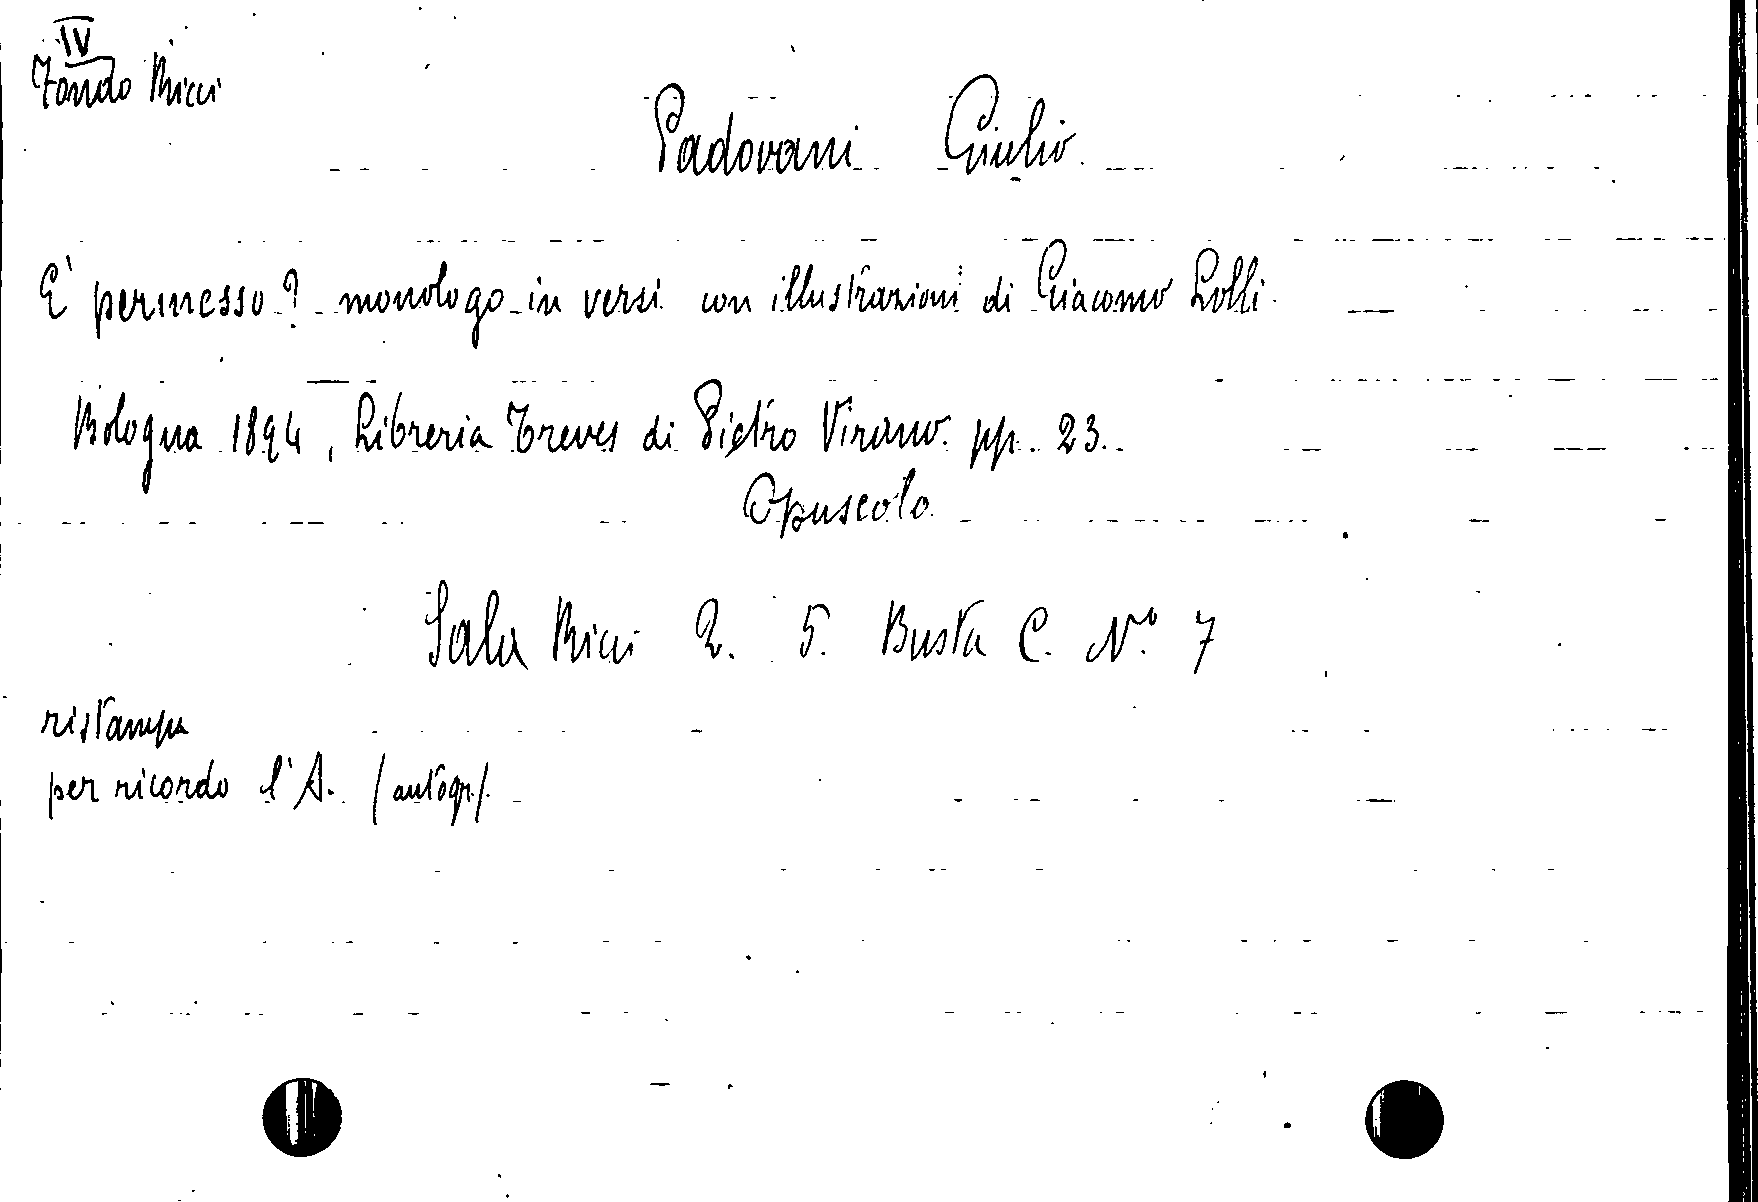 IV
Fondo Ricci
Padovani Giulio
E' permesso? monologo in versi con illustrazioni di Giacomo Lolli
Bologna 1894, Libreria Treves di Pietro Virano. pp. 23.
Opuscolo
Sala Ricci 2. 5. Busta C. N.º 7
ristampa
per ricordo l'A. (autogr.)